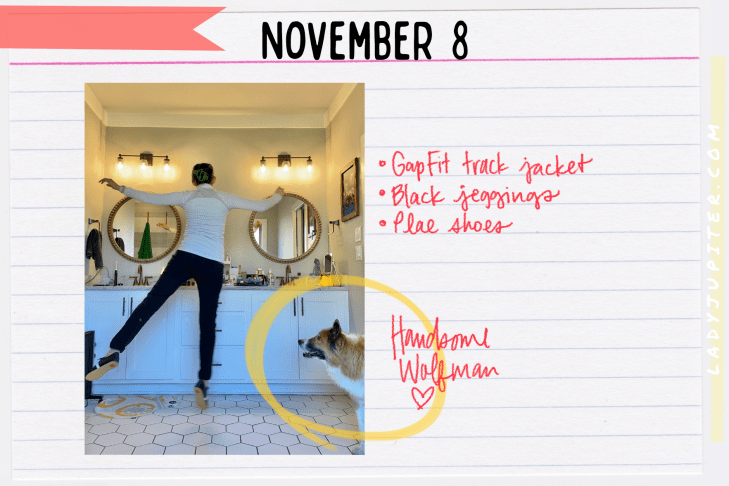 NOVEMBER 8
• GapFit track jacket
• Black jeggings
• Plae shoes
Handsome
Wolfman
LADYJUPITER.COM